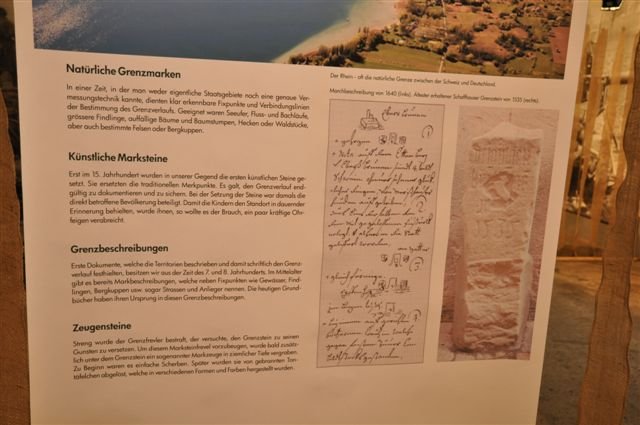 Natürliche Grenzmarken
In einer Zeit, in der man weder eigentliche Staatsgebiete noch eine genaue Ver-
messungstechnik kannte, dienten klar erkennbare Fixpunkte und Verbindungslinien
der Bestimmung des Grenzverlaufs. Geeignet waren Seeufer, Fluss- und Bachläufe,
grössere Findlinge, auffällige Bäume und Baumstumpen, Hecken oder Waldstücke,
aber auch bestimmte Felsen oder Bergkuppen.
Künstliche Marksteine
Erst im 15. Jahrhundert wurden in unserer Gegend die ersten künstlichen Steine ge-
setzt. Sie ersetzten die traditionellen Merkpunkte. Es galt, den Grenzverlauf end-
gültig zu dokumentieren und zu sichern. Bei der Setzung der Steine war damals die
direkt betroffene Bevölkerung beteiligt. Damit die Kindern den Standort in dauernder
Erinnerung behielten, wurde ihnen, so wollte es der Brauch, ein paar kräftige Ohr-
feigen verabreicht.
Grenzbeschreibungen
Erste Dokumente, welche die Territorien beschrieben und damit schriftlich den Grenz-
verlauf festhielten, besitzen wir aus der Zeit des 7. und 8. Jahrhunderts. Im Mittelalter
gibt es bereits Markbeschreibungen, welche neben Fixpunkten wie Gewässer, Find-
lingen, Bergkuppen usw. sogar Strassen und Anlieger nennen. Die heutigen Grund-
bücher haben ihren Ursprung in diesen Grenzbeschreibungen.
Zeugensteine
Streng wurde der Grenzfrevler bestraft, der versuchte, den Grenzstein zu seinen
Gunsten zu versetzen. Um diesem Marksteinfrevel vorzubeugen, wurde bald zusätz-
lich unter dem Grenzstein ein sogenannter Markzeuge in ziemlicher Tiefe vergraben.
Zu Beginn waren es einfache Scherben. Später wurden sie von gebrannten Ton-
täfelchen abgelöst, welche in verschiedenen Formen und Farben hergestellt wurden.
Der Rhein - oft die natürliche Grenze zwischen der Schweiz und Deutschland.
Marchbeschreibung von 1640 (links). Ältester erhaltener Schaffhauser Grenzstein von 1535 (rechts).